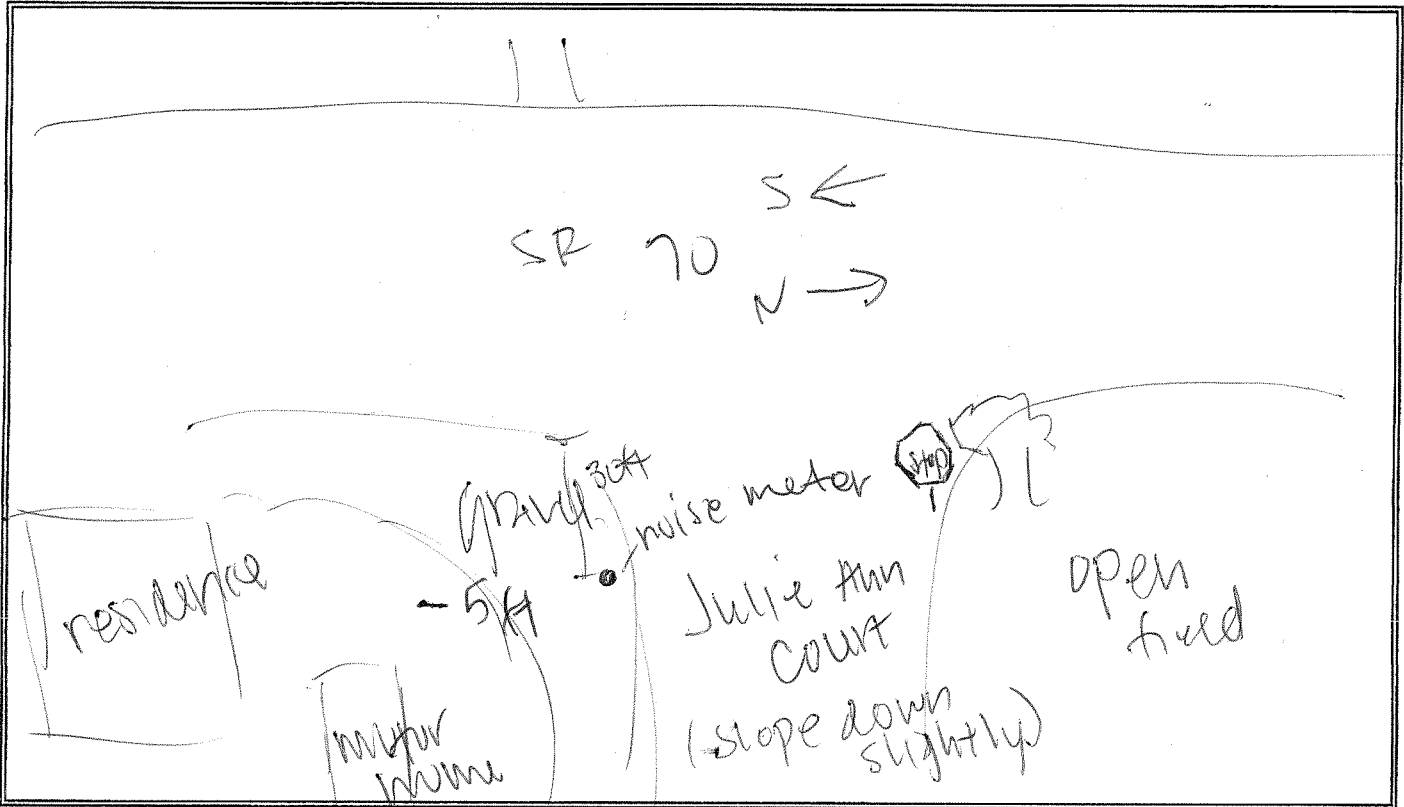 S ←
SR 70
N →
gravel
30ft
noise meter
stop
residence
- 5ft
Julie Ann
Court
(slope down
slightly)
open
field
motor
home